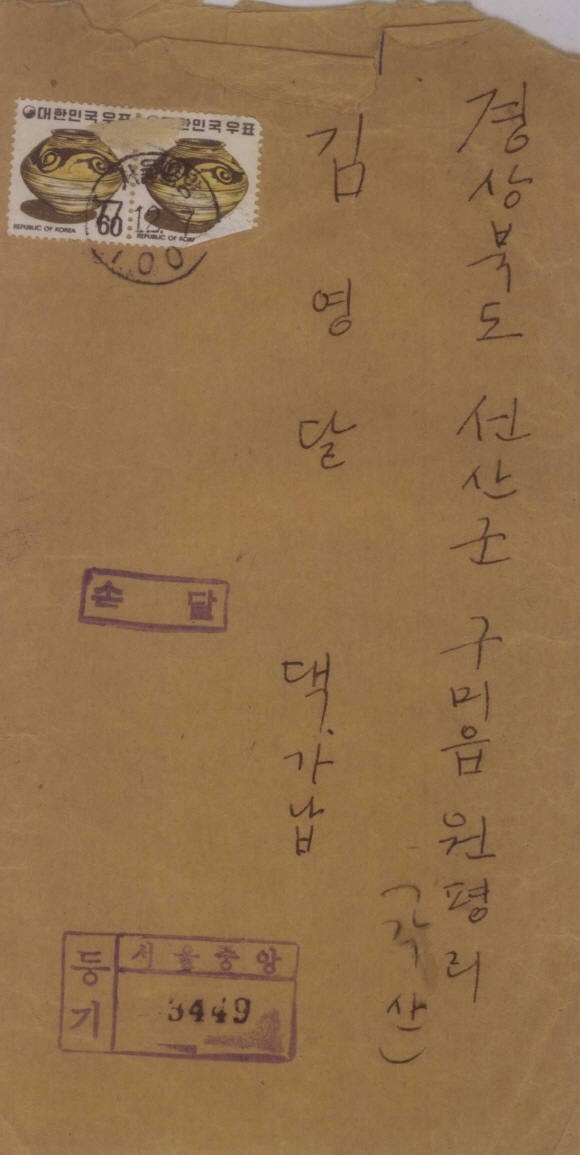 경상북도 선산군 구미읍 원평리
(각산)
김영달 댁.가납
대한민국우표
민국우표
60
REPUBLIC OF KOREA
REPUBLIC OF KOR
77.12.7
100
손달
등기
서울중앙
3449